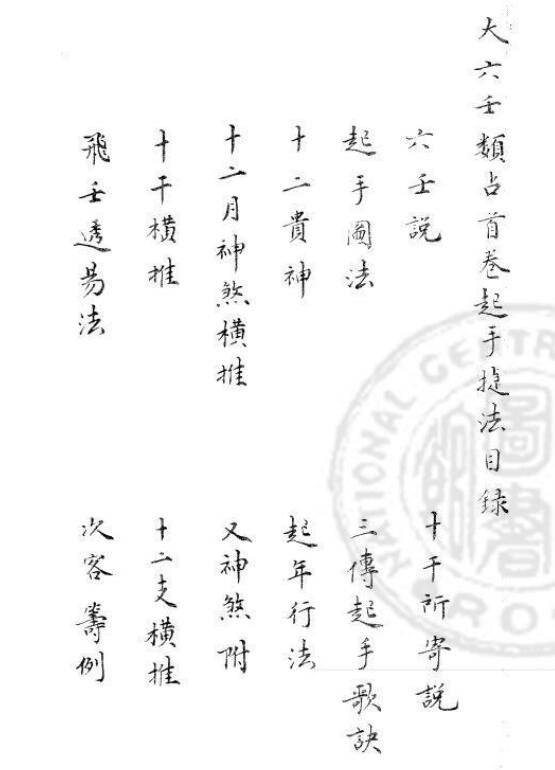 大六壬類占首卷起手捷法目録
六壬説
十干所寄説
起手圖法
三傳起手歌訣
十二貴神
起年行法
十二月神煞横推
又神煞附
十干横推
十二支横推
飛壬透易法
次客籌例
NATIONAL CENTR